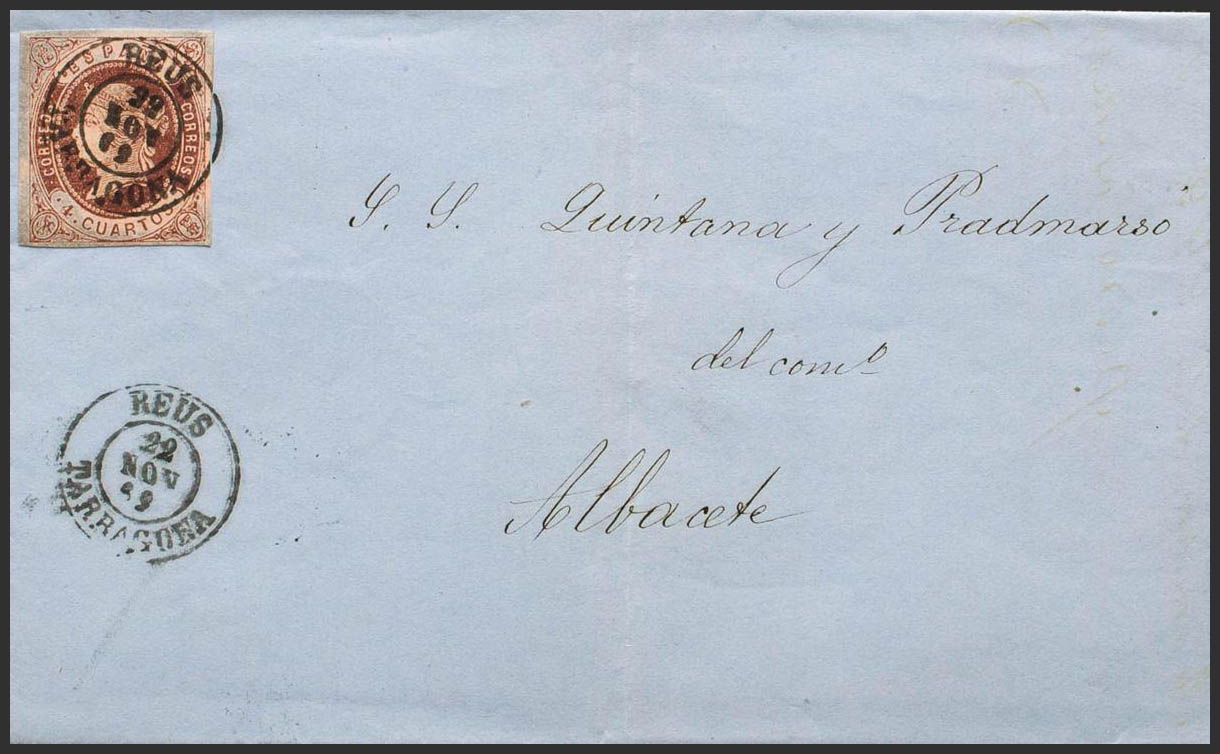 ESPAÑA
CORREOS
CORREOS
4. CUARTOS
REUS
22
NOV
69
TARRAGONA
S. S. Quintana y Pradmarsó
del comº
Albacete
REUS
22
NOV
69
TARRAGONA